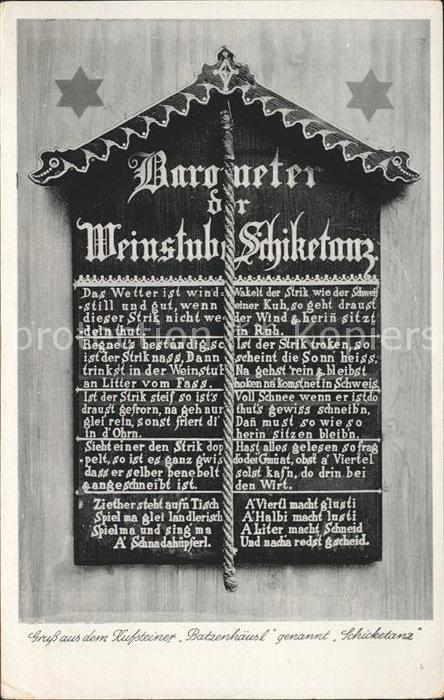 Barometer
der
Weinstube Schiketanz
Das Wetter ist wind-
still und gut, wenn
dieser Strik nicht we-
deln thut.
Regnet's beständig, so
ist der Strik nass, Dann
trinkst in der Weinstub
an Litter vom Fass.
Ist der Strik steif so ist's
draust gefrorn, na geh nur
glei rein, sonst friert di'
in d'Ohrn.
Sieht einer den Strik dop
pelt, so ist es ganz gwis
dass er selber benebelt
& angescheibt ist.
Ziether steht aufn Tisch
Spiel ma glei landlerisch
Spiel ma und sing ma
A' Schnadahüpferl.
Wakelt der Strik wie der Schweif
einer Kuh, so geht draust
der Wind & herin sitzt
in Ruh.
Ist der Strik troken, so
scheint die Sonn heiss,
Na gehst 'rein & bleibst
hoken na komst net in Schweis
Voll Schnee wenn er ist do
thut's gewiss schneibn,
Dan must so wie so
herin sitzen bleibn.
Hast alles gelesen so frag
do dei Gmüat, obst a' Viertel
solst kafn, do drin bei
den Wirt.
A' Viertl macht glusti
A' Halbi macht lusti
A Liter macht Schneid
Und nacha redst gscheid.
Gruß aus dem Kufsteiner „Batzenhäusl" genannt „Schicketanz"